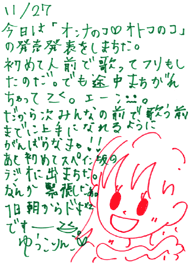 11/27
今日は「オンナのコ♡オトコのコ」
の発売発表をしまちた。
初めて人前で歌ってフリもし
たのだ。でも途中まちがん
ちゃってこく。エーン
だから次みんなの前で歌う前
までに上手になれるように
がんばらなきゃ!!
あと初めてスペイン坂の
ラジオに出まちた。
なんか緊張した
1日朝からドキドキ
です
ゆうこりん